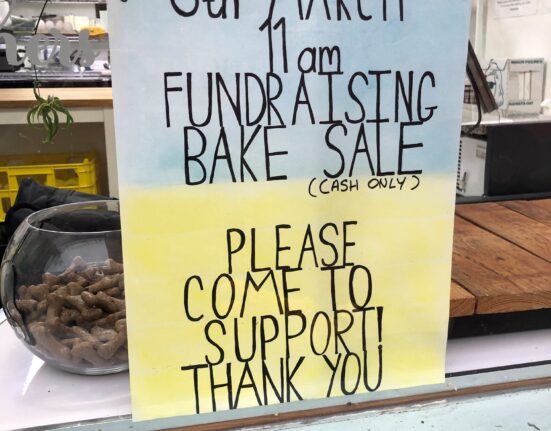 MARCH
11 am
FUNDRAISING
BAKE SALE
(CASH ONLY)
PLEASE
COME TO
SUPPORT!
THANK YOU